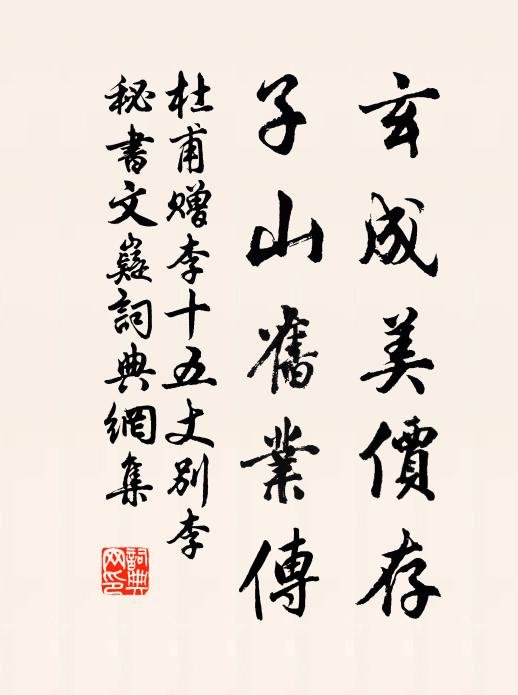 玄成美價存
子山舊業傳
杜甫贈李十五丈別李
秘書文嶷詞典網集
詞典網印